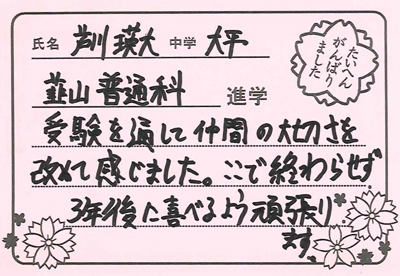 氏名 芦川 瑛大 中学 大平
たいへん
がんばり
ました
韮山 普通科 進学
受験を通して仲間の大切さを
改めて感じました。ここで終わらせず
3年後に喜べるよう頑張り
ます。